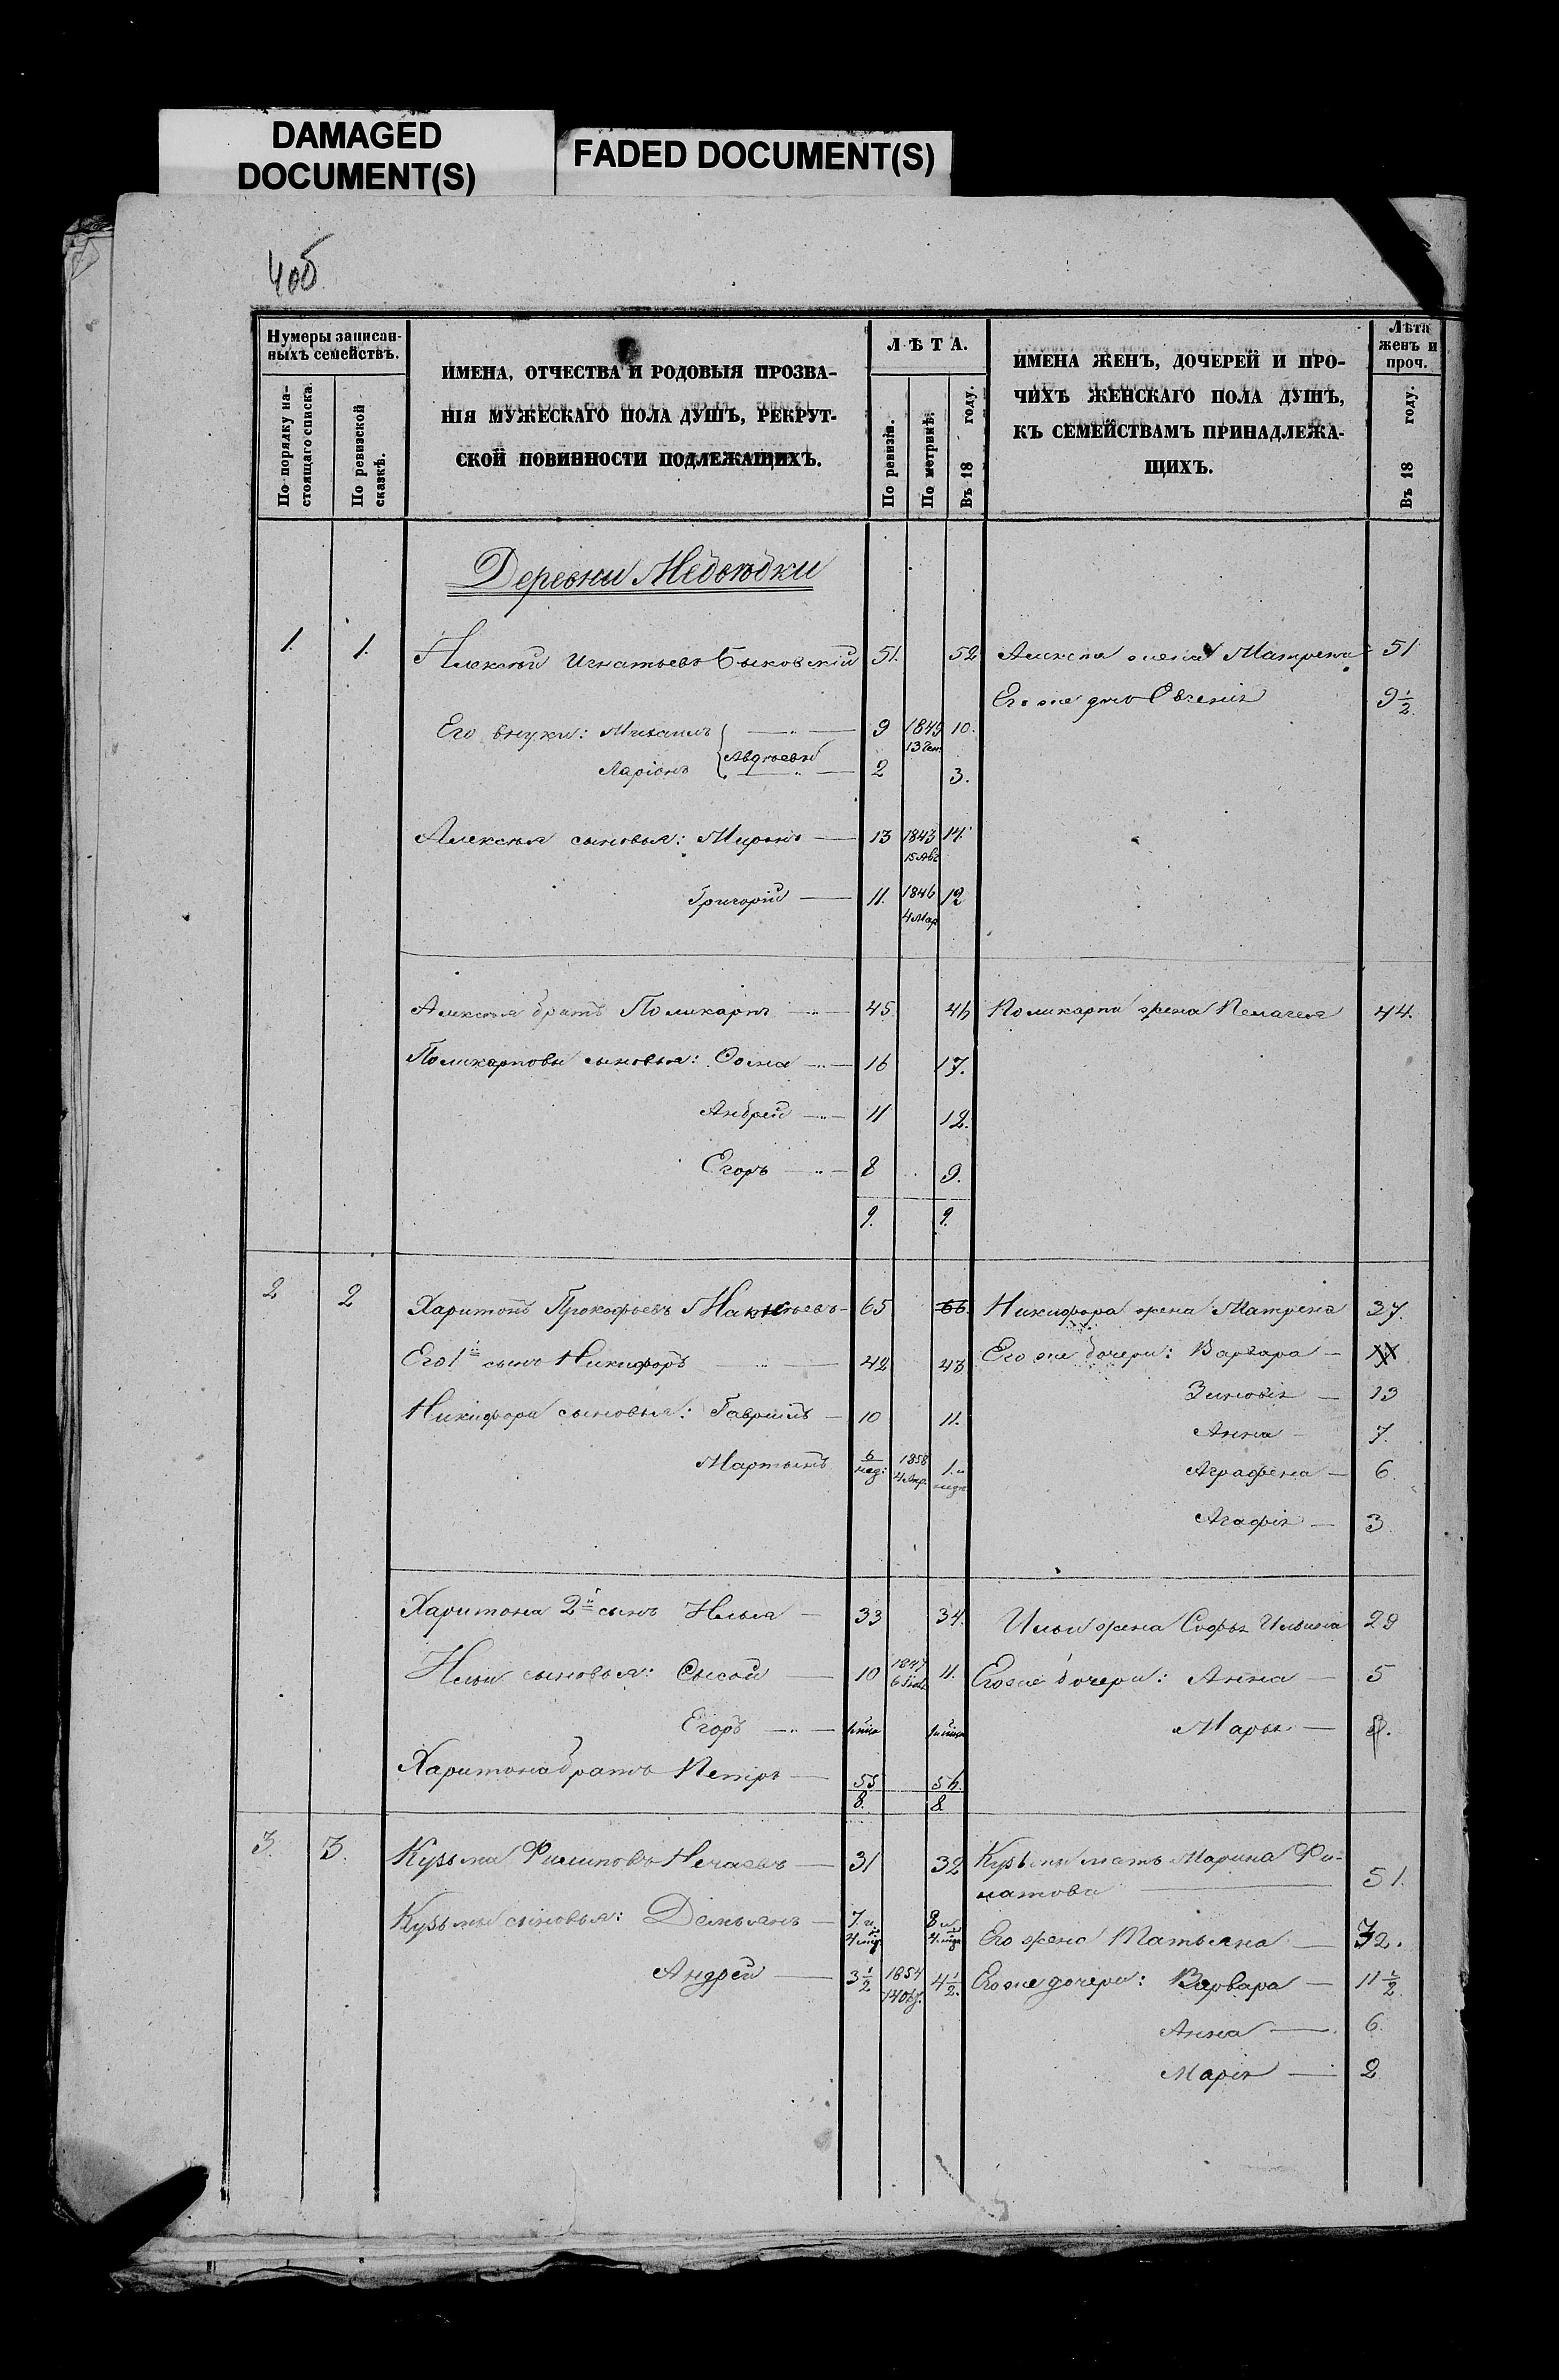 DAMAGED
DOCUMENT(S)
FADED DOCUMENT(S)
40б
Нумеры записан-
ныхъ семействъ.
По порядку на-
стоящаго списка.
По ревизской
сказкѣ.
ИМЕНА, ОТЧЕСТВА И РОДОВЫЯ ПРОЗВА-
НІЯ МУЖЕСКАГО ПОЛА ДУШЪ, РЕКРУТ-
СКОЙ ПОВИННОСТИ ПОДЛЕЖАЩИХЪ.
ЛѢТА.
По ревизіи.
По метрикѣ.
Въ 18 году.
ИМЕНА ЖЕНЪ, ДОЧЕРЕЙ И ПРО-
ЧИХЪ ЖЕНСКАГО ПОЛА ДУШЪ,
КЪ СЕМЕЙСТВАМЪ ПРИНАДЛЕЖА-
ЩИХЪ.
Лѣта
женъ и
проч.
Въ 18 году.
Деревни Медвѣдки
1. 1. Алексѣй Игнатьевъ Быковскій 51. 52 Алексѣя жена Матрена 51
Его же дочь Евгенія 9 1/2
Его внуки: Михаилъ 9 1849 10.
13
Авдѣевы
Ларіонъ 2 3.
Алексѣя сыновья: Миронъ 13 1843 14.
15 Авг
Григорій 11. 1846 12
4 Мар
Алексѣя братъ Поликарпъ 45. 46 Поликарпа жена Пелагея 44.
Поликарповы сыновья: 16 17.
Андрей 11 12.
Егоръ 8 9.
9. 9.
2 2 Харитонъ Прокофьевъ 65 66. Никифора жена Матрена 37.
Его 1й сынъ Никифоръ 42 43 Его же дочери: Варвара
Зиновія 13
Никифора сыновья: Гавріилъ 10 11. Анна 7.
Мартынъ 6 нед: 1858 4 Апр. 1. и Аграфена 6.
Агафія 3
Харитона 2й сынъ Илья 33 34. Ильи жена Софья Ильина 29
Ильи сыновья: Сысой 10 1847 11. Его же дочери: Анна 5
Егоръ Марья
Харитона братъ Петръ 55 56.
8. 8
3. 3. Кузьма Филиповъ Нечаевъ 31 32 Кузьмы мать Марина Фи-
латова 51.
Кузьмы сыновья: Демьянъ 7 и 8 и
4 4 Его жена Татьяна 32.
Андрей 3 1/2 1854 4 1/2. Его же дочери: Варвара 11 1/2
Анна 6.
Марія 2